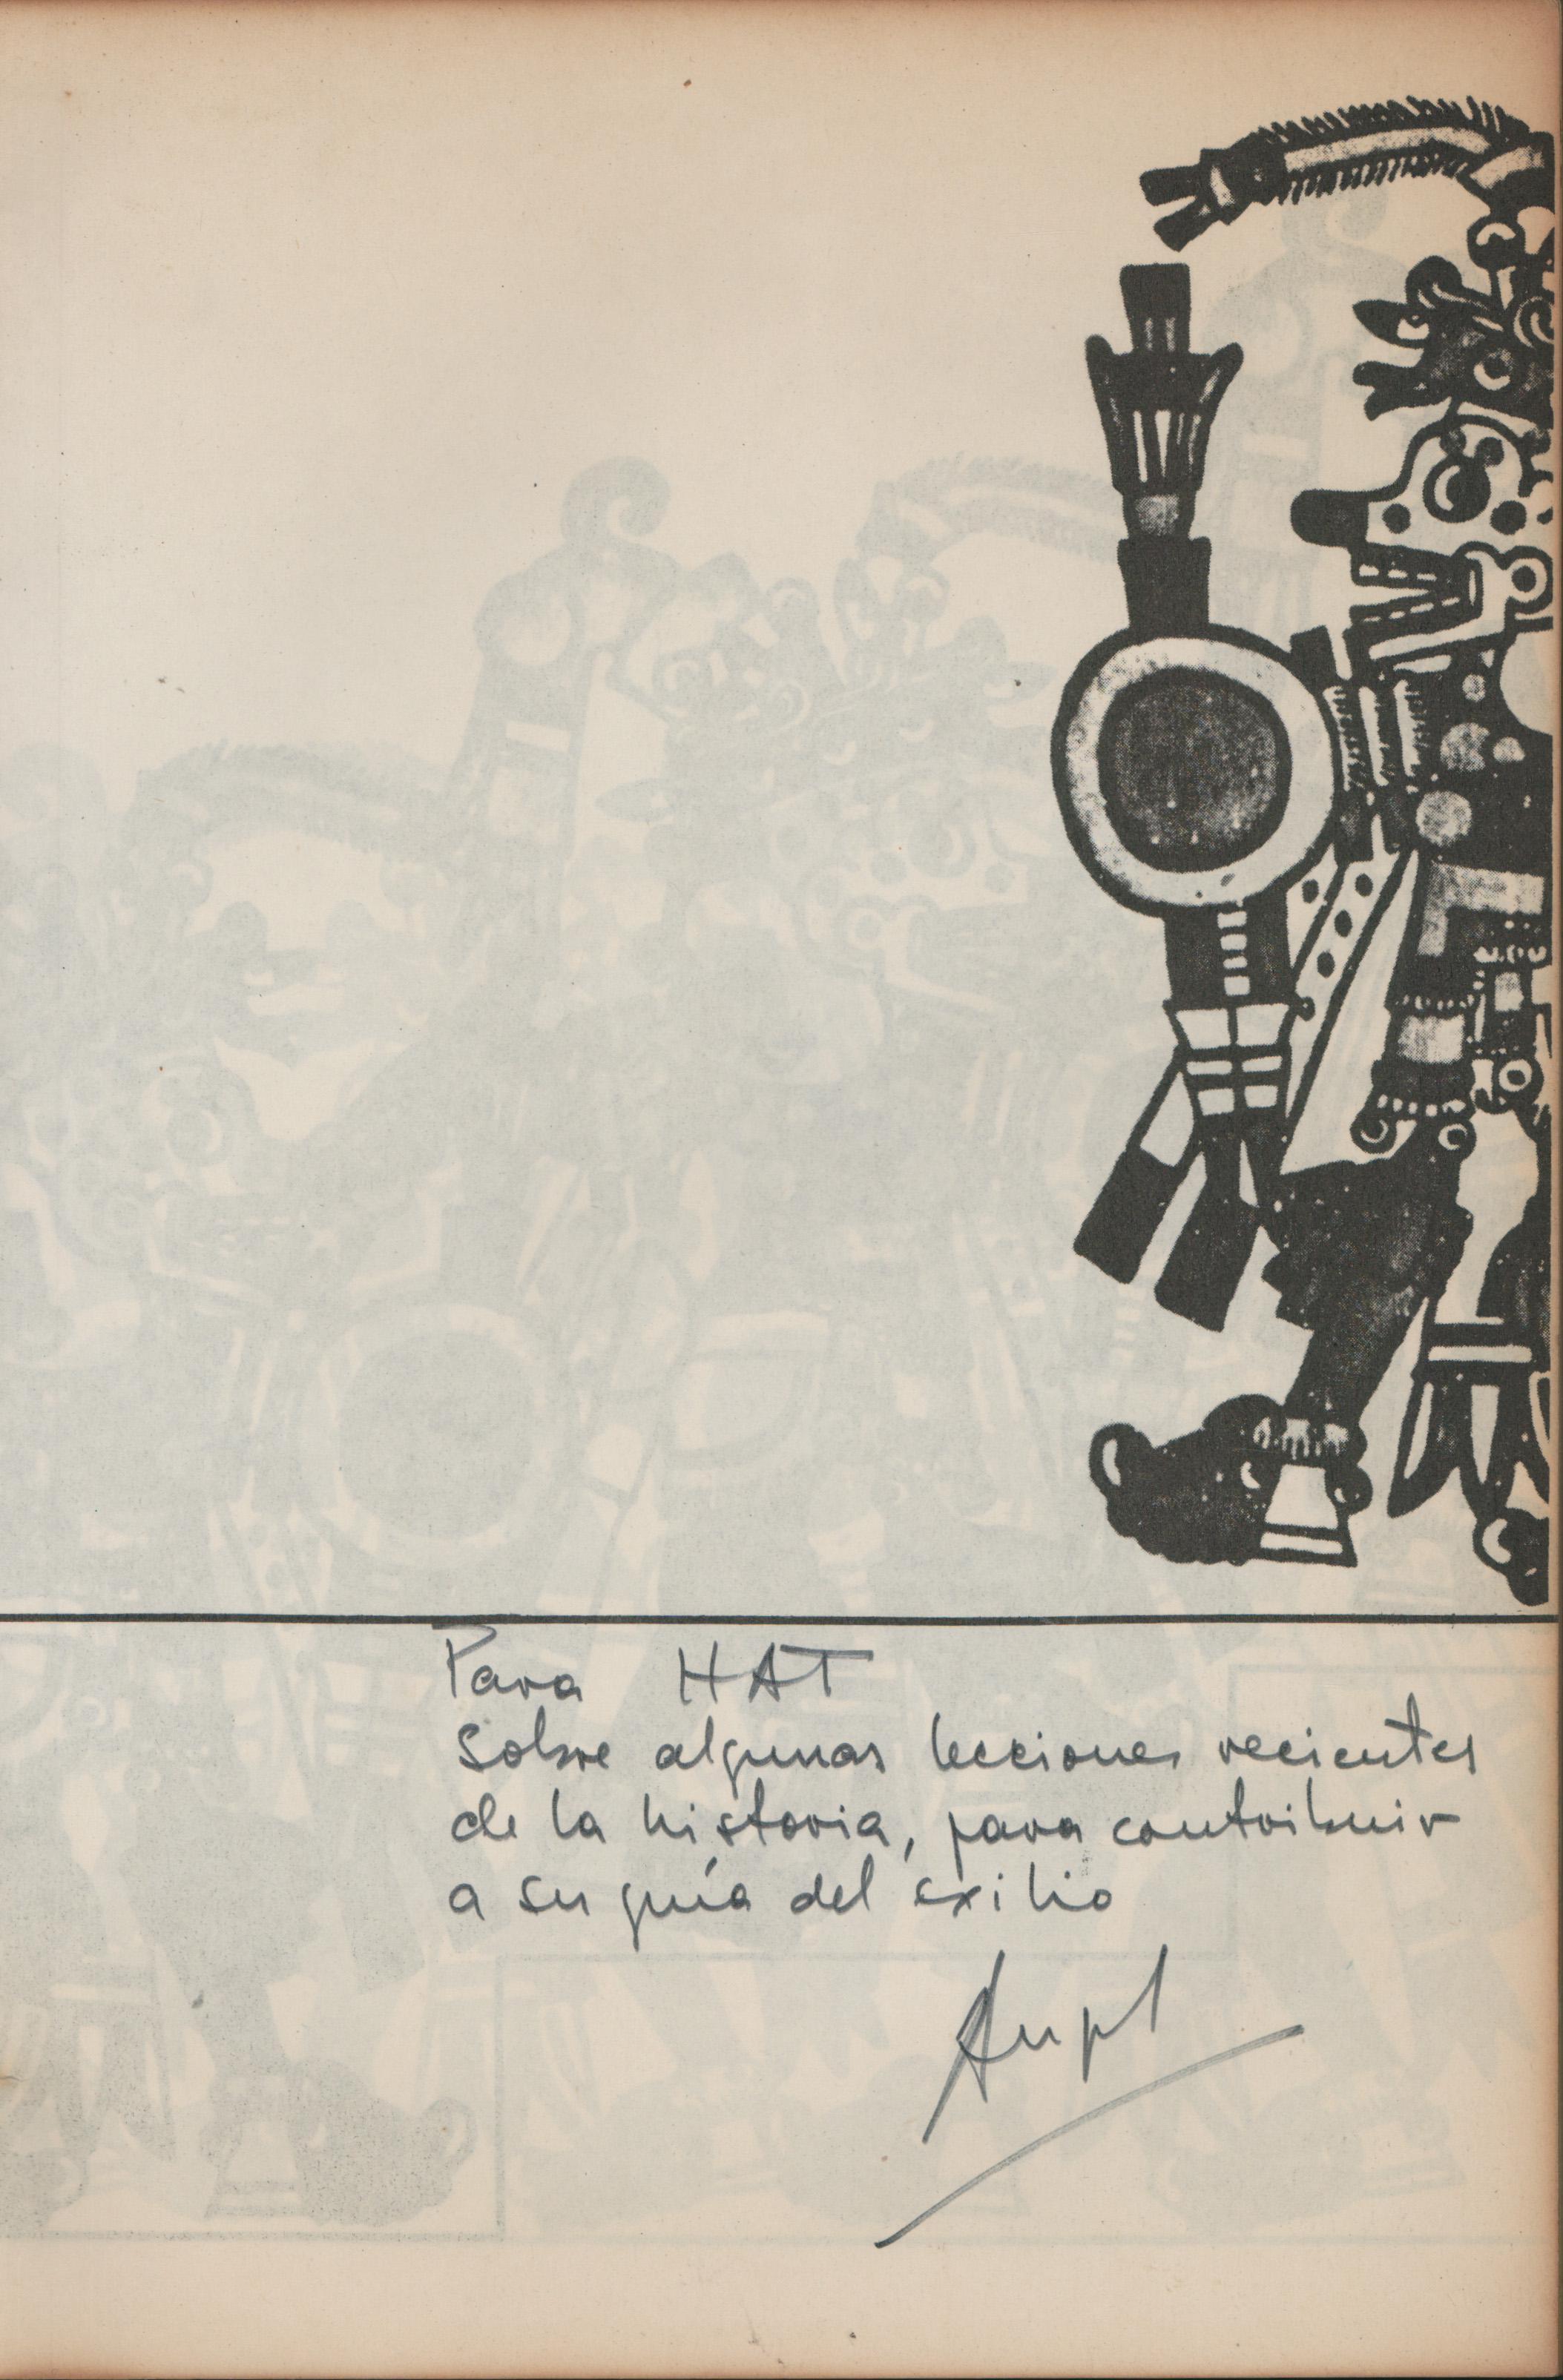 Para HAT
Sobre algunas lecciones recientes
de la historia, para contribuir
a su guía del exilio